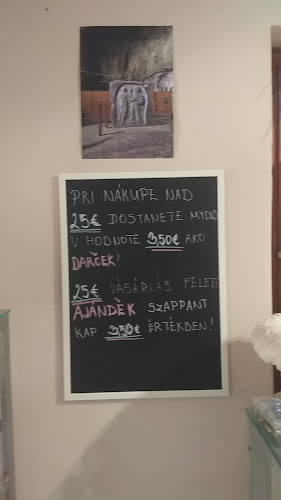 PRI NÁKUPE NAD
25€ DOSTANETE MYDLO
V HODNOTE 3,50€ AKO
DARČEK!
25€ VÁSÁRLÁS FELETT
AJÁNDÈK SZAPPANT
KAP 3,50€ ÉRTÉKBEN!